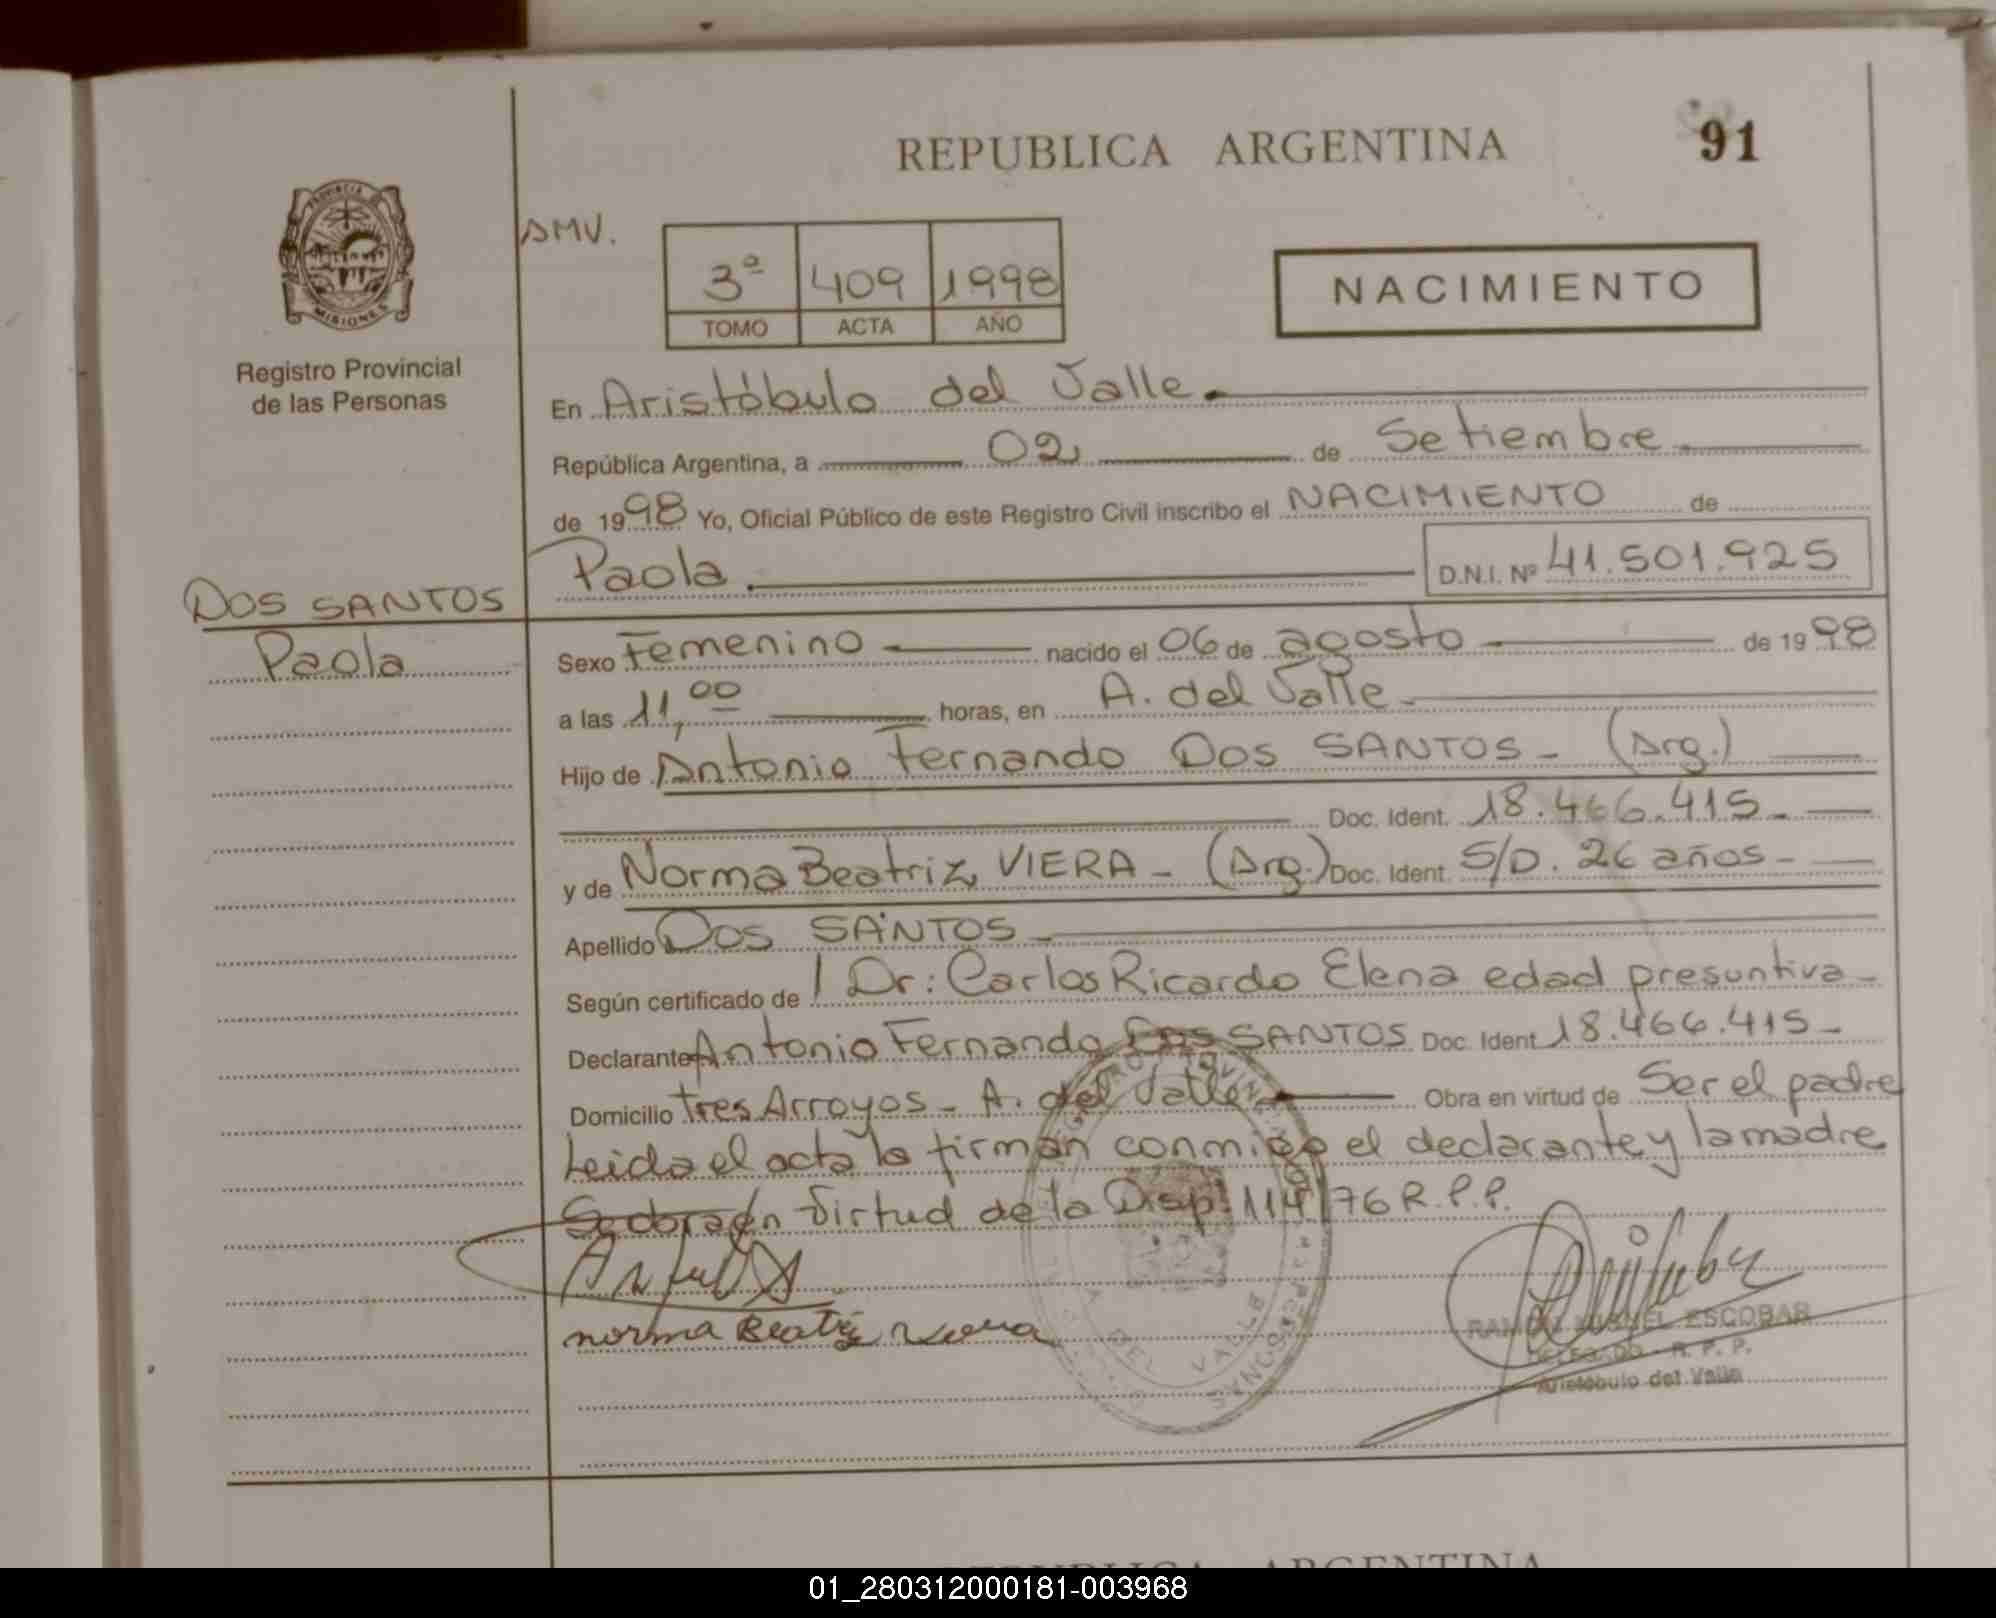 REPUBLICA ARGENTINA
91
PROVINCIA DE
MISIONES
Registro Provincial
de las Personas
3ª 409 1998
TOMO ACTA AÑO
NACIMIENTO
En Aristóbulo del Valle.
República Argentina, a 02 de Setiembre
de 1998 Yo, Oficial Público de este Registro Civil inscribo el NACIMIENTO de
Paola. D.N.I. Nº 41.501.925
DOS SANTOS
Paola
Sexo Femenino nacido el 06 de agosto de 1998
a las 11,00 horas, en A. del Valle
Hijo de Antonio Fernando DOS SANTOS - (Arg.)
Doc. Ident. 18.466.415-
y de Norma Beatriz VIERA - (Arg.) Doc. Ident. S/D. 26 años-
Apellido DOS SANTOS-
Según certificado de Dr: Carlos Ricardo Elena edad presuntiva-
Declarante Antonio Fernando DOS SANTOS Doc. Ident 18.466.415-
Domicilio tres Arroyos - A. del Valle Obra en virtud de Ser el padre
Leida el acta la firman conmigo el declarante y la madre
en Virtud de la Disp. 114/76 R.P.P.
norma Beatriz Viera
RAMON MIGUEL ESCOBAR
DELEGADO - R. P. P.
Aristóbulo del Valle
A. DEL VALLE
REPUBLICA ARGENTINA
01_280312000181-003968